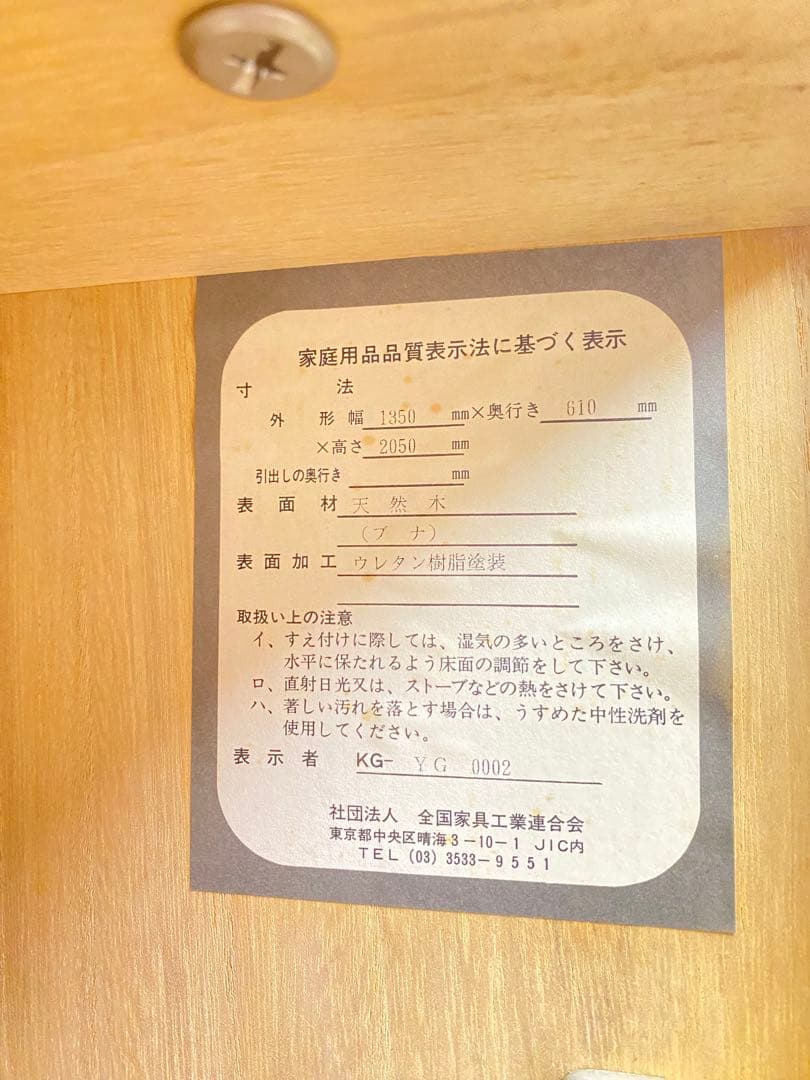 家庭用品品質表示法に基づく表示
寸法
外形幅 1350 mm×奥行き 610 mm
×高さ 2050 mm
引出しの奥行き mm
表面材 天然木
(ブナ)
表面加工 ウレタン樹脂塗装
取扱い上の注意
イ、すえ付けに際しては、湿気の多いところをさけ、
水平に保たれるよう床面の調節をして下さい。
ロ、直射日光又は、ストーブなどの熱をさけて下さい。
ハ、著しい汚れを落とす場合は、うすめた中性洗剤を
使用してください。
表示者 KG- YG 0002
社団法人 全国家具工業連合会
東京都中央区晴海3-10-1 JIC内
TEL (03) 3533-9551